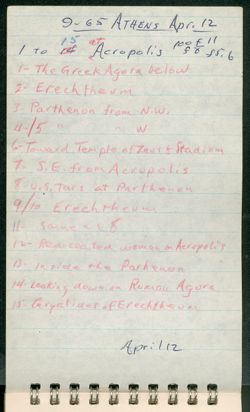 9-65 ATHENS Apr. 12
15 at
1 to Acropolis 100 f 11
f 8 f 5.6
1- The Greek Agora below
2- Erechtheum
3. Parthenon from N.W.
4-/5 " " W
6-Toward Temple of Zeus & Stadium
7- S.E. from Acropolis
8- U.S. Tars at Parthenon
9/10 Erechtheum
11- same as 8
12- Redcoated woman on Acropolis
13- inside the Parhenon
14- Looking down on Roman Agora
15- Caryatides of Erechtheum
April 12